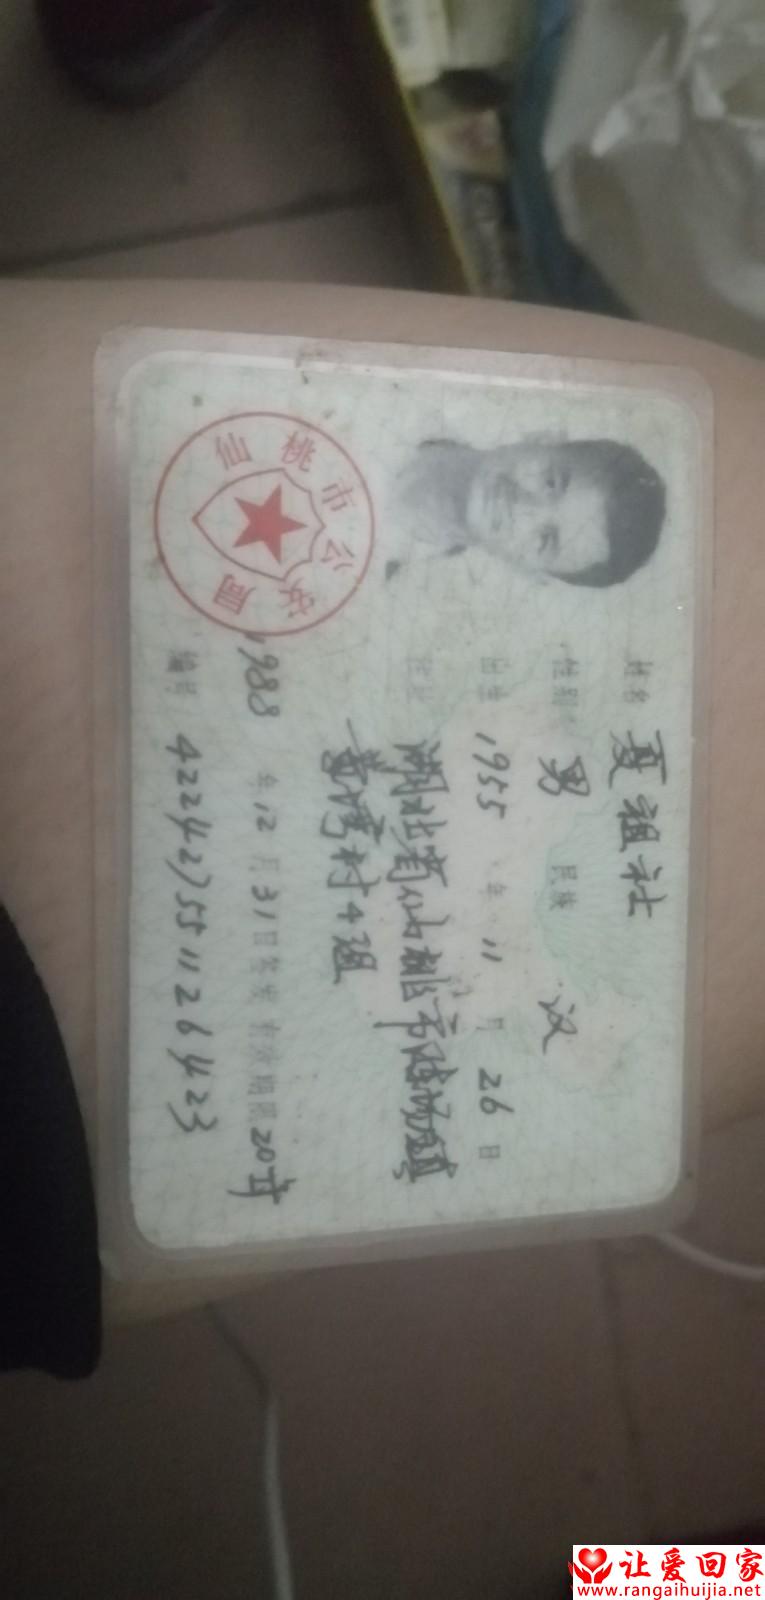 姓名 夏祖社
性别 男 民族 汉
出生 1955 年 11 月 26 日
住址 湖北省仙桃市陈场镇
黄湾村4组
1988 年 12 月 31 日签发 有效期限 20年
编号 422427551126423
仙桃市公安局
让爱回家
www.rangaihuijia.net